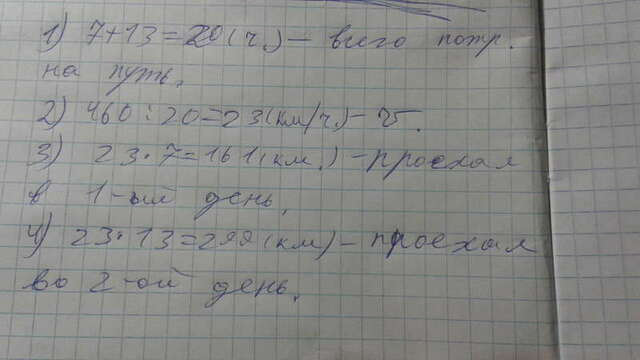 1) 7+13=20(ч.) – всего потр.
на путь.
2) 460:20=23(км/ч) – V.
3) 23·7=161(км.) – проехал
в 1-ый день.
4) 23·13=299(км) – проехал
во 2-ой день.